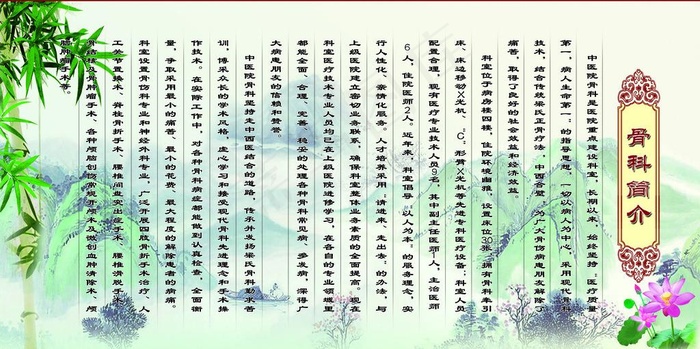 骨科简介
中医院骨科是医院重点建设科室，长期以来，始终坚持：医疗质量
第一，病人生命第一：的指导思想，一切以病人为中心，采用现代骨科
技术，结合传统梁氏正骨疗法，中西合璧，为广大骨伤病患朋友解除了
痛苦，取得了良好的社会效益和经济效益。
科室位于病房楼四楼，住院环境幽雅，设置床位30张，拥有骨科牵引
床、床边移动X光机、：C：形臂X光机等先进专科医疗设备；科室人员
配置合理，现有医疗专业技术人员9名，其中副主任医师1人，主治医师
6人，住院医师2人。近年来，科室倡导：以人为本：的服务理念，实
行人性化、亲情化服务。人才培养采用：请进来，走出去：的办法，与
上级医院建立密切业务联系，确保科室整体业务素质的全面提高。现在
科室医疗技术专业人员均已在上级医院进修学习，在各自的专业领域里
都能全面、合理、完善、稳妥的处理各种骨科常见病、多发病，深得广
大病患朋友的信赖和赞誉。
中医院骨科坚持走中西医结合的道路，传承并发扬梁氏骨科勤求善
训，博采众长的学术风格，虚心学习和接受现代骨科先进理念和手术操
作技术。在实际工作中，对各种骨科病症都能做到认真检查，全面衡
量，争取采用最小的痛苦、最小的花费，最大程度的解除患者的病痛。
科室设置骨伤科专业和神经外科专业，广泛开展四肢骨折手术治疗、人
工关节置换术、脊柱骨折手术、腰椎间盘突出症手术、腰椎滑脱手术、
骨结核及骨肿瘤手术、各种颅脑创伤常规开颅术及微创血肿清除术、颅
脑肿瘤手术等。